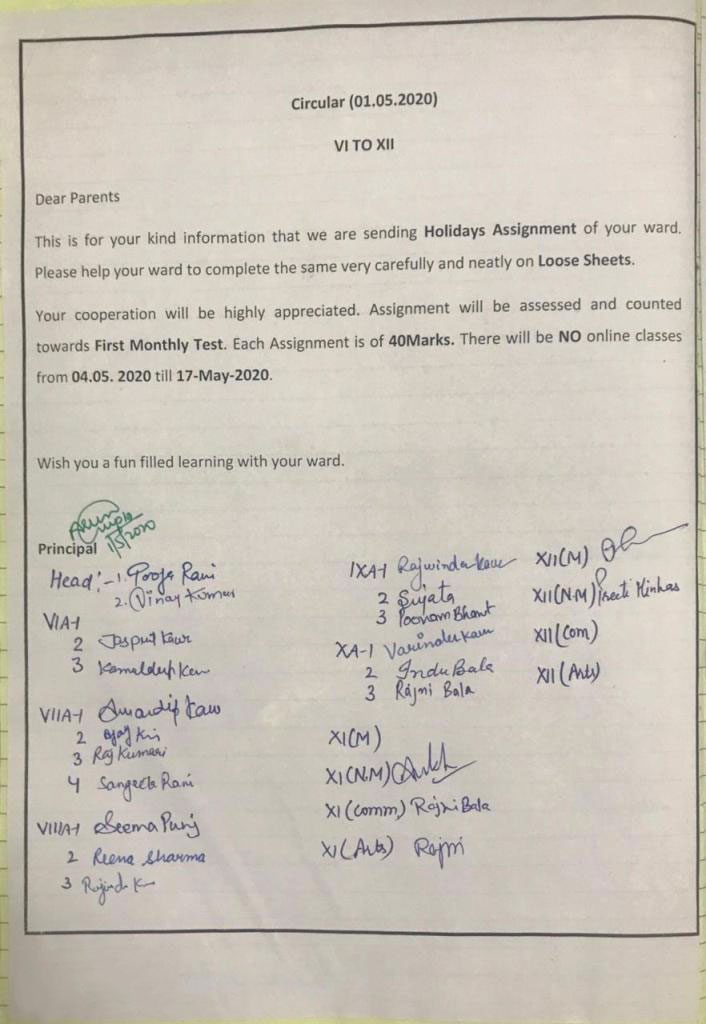 Circular (01.05.2020)
VI TO XII
Dear Parents
This is for your kind information that we are sending Holidays Assignment of your ward.
Please help your ward to complete the same very carefully and neatly on Loose Sheets.
Your cooperation will be highly appreciated. Assignment will be assessed and counted
towards First Monthly Test. Each Assignment is of 40Marks. There will be NO online classes
from 04.05. 2020 till 17-May-2020.
Wish you a fun filled learning with your ward.
1/5/2020
Principal
Head:- 1. Pooja Rani
2. Vinay Kumar
VIA-1
2 Jasput Kaur
3 Kamaldeep Kaur
VIIA-1 Amardip Kaur
2
3 Raj Kumari
4 Sangeeta Rani
VIIIA-1 Seema Punj
2 Reena Sharma
3
IXA-1 Rajwinder Kaur
2 Sujata
3 Poonam Bhant
XA-1 Varinder Kaur
2 Indu Bala
3 Rajni Bala
XI(M)
XI(N.M)
XI(Comm) Rajni Bala
XI(Arts) Rajni
XII(M)
XII(N.M) Preeti Minhas
XII(Com)
XII(Arts)